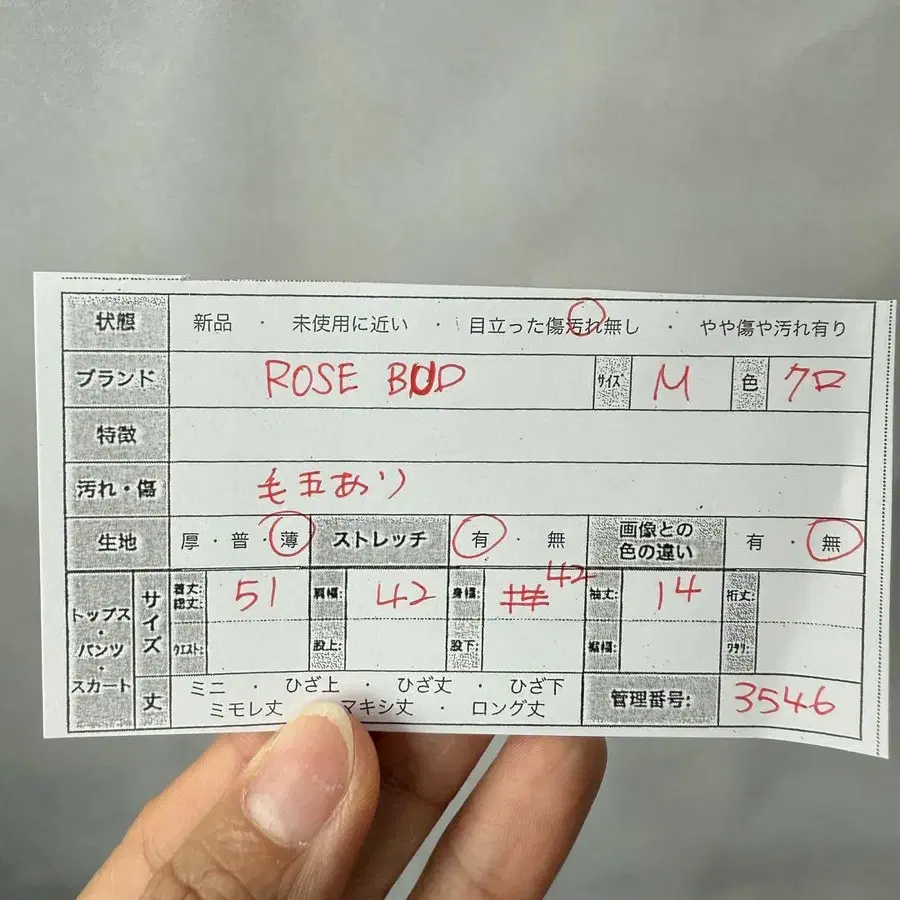 状態 新品 ・ 未使用に近い ・ 目立った傷汚れ無し ・ やや傷や汚れ有り
ブランド ROSE BUD サイズ M 色 クロ
特徴
汚れ・傷 毛玉あり
生地 厚・普・薄 ストレッチ 有・無 画像との色の違い 有・無
トップス・パンツ・スカート サイズ 着丈:総丈: 51 肩幅: 42 身幅: 42 袖丈: 14 裄丈:
ウエスト: 股上: 股下: 裾幅: ワタリ:
丈 ミニ ・ ひざ上 ・ ひざ丈 ・ ひざ下
ミモレ丈 マキシ丈 ・ ロング丈 管理番号: 3546